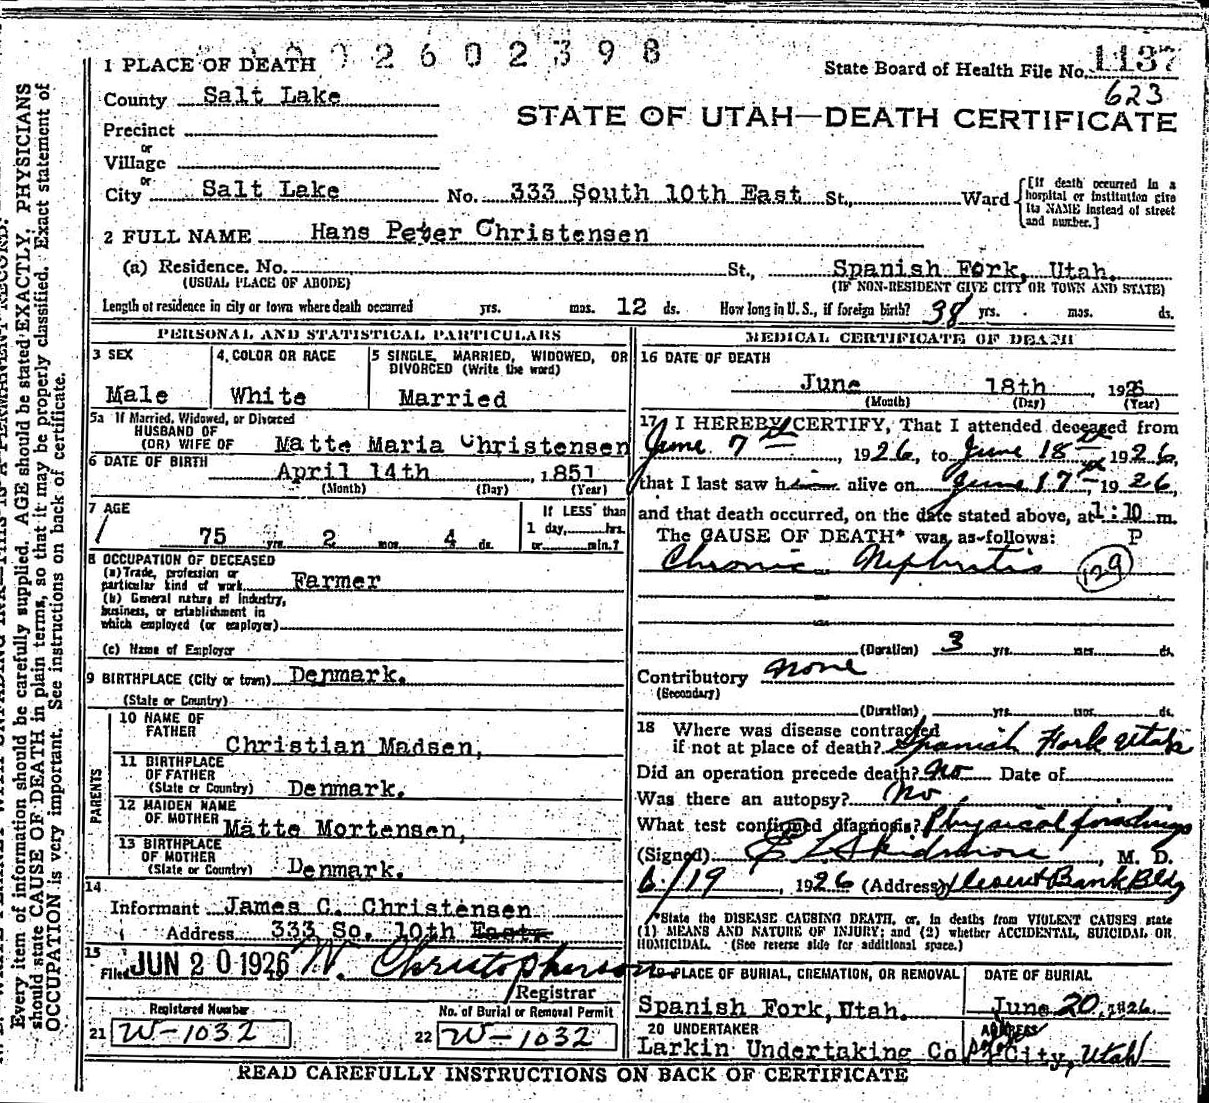 0 0 2 6 0 2 3 9 8
1 PLACE OF DEATH
State Board of Health File No. 1137
County Salt Lake
623
STATE OF UTAH—DEATH CERTIFICATE
Precinct
or
Village
or
City Salt Lake No. 333 South 10th East St., Ward [If death occurred in a hospital or institution give its NAME instead of street and number.]
2 FULL NAME Hans Peter Christensen
(a) Residence. No. St., Spanish Fork, Utah.
(USUAL PLACE OF ABODE) (IF NON-RESIDENT GIVE CITY OR TOWN AND STATE)
Length of residence in city or town where death occurred yrs. mos. 12 ds. How long in U. S., if foreign birth? 38 yrs. mos. ds.
PERSONAL AND STATISTICAL PARTICULARS
3 SEX
Male
4. COLOR OR RACE
White
5 SINGLE, MARRIED, WIDOWED, OR
DIVORCED (Write the word)
Married
5a If Married, Widowed, or Divorced
HUSBAND OF
(OR) WIFE OF Matte Maria Christensen
6 DATE OF BIRTH
April 14th, 1851
(Month) (Day) (Year)
7 AGE
75 yrs. 2 mos. 4 ds.
If LESS than
1 day, hrs.
or min.?
8 OCCUPATION OF DECEASED
(a) Trade, profession or
particular kind of work Farmer
(b) General nature of industry,
business, or establishment in
which employed (or employer)
(c) Name of Employer
9 BIRTHPLACE (City or town) Denmark.
(State or Country)
PARENTS
10 NAME OF
FATHER
Christian Madsen,
11 BIRTHPLACE
OF FATHER
(State or Country) Denmark.
12 MAIDEN NAME
OF MOTHER
Matte Mortensen,
13 BIRTHPLACE
OF MOTHER
(State or Country) Denmark.
14
Informant James C. Christensen
Address 333 So. 10th East
15
Filed JUN 20 1926 W. Christopherson
Registrar
Registered Number
21 W-1032
No. of Burial or Removal Permit
22 W-1032
MEDICAL CERTIFICATE OF DEATH
16 DATE OF DEATH
June 18th 1926
(Month) (Day) (Year)
17 I HEREBY CERTIFY, That I attended deceased from
June 7th, 1926, to June 18th 1926,
that I last saw him alive on June 17th, 1926,
and that death occurred, on the date stated above, at 1:10 m.
The CAUSE OF DEATH* was as follows: P
Chronic Nephritis 129
(Duration) 3 yrs. mos. ds.
Contributory none
(Secondary)
(Duration) yrs. mos. ds.
18 Where was disease contracted
if not at place of death? Spanish Fork Utah
Did an operation precede death? No Date of
Was there an autopsy? No
What test confirmed diagnosis? Physical findings
(Signed) E L Skidmore, M. D.
6/19, 1926 (Address) Deseret Bank Bldg
*State the DISEASE CAUSING DEATH, or, in deaths from VIOLENT CAUSES state
(1) MEANS AND NATURE OF INJURY; and (2) whether ACCIDENTAL, SUICIDAL OR
HOMICIDAL. (See reverse side for additional space.)
PLACE OF BURIAL, CREMATION, OR REMOVAL
Spanish Fork, Utah.
DATE OF BURIAL
June 20, 1926
20 UNDERTAKER
Larkin Undertaking Co
ADDRESS
City, Utah
READ CAREFULLY INSTRUCTIONS ON BACK OF CERTIFICATE
Every item of information should be carefully supplied. AGE should be stated EXACTLY. PHYSICIANS
should state CAUSE OF DEATH in plain terms, so that it may be properly classified. Exact statement of
OCCUPATION is very important. See instructions on back of certificate.